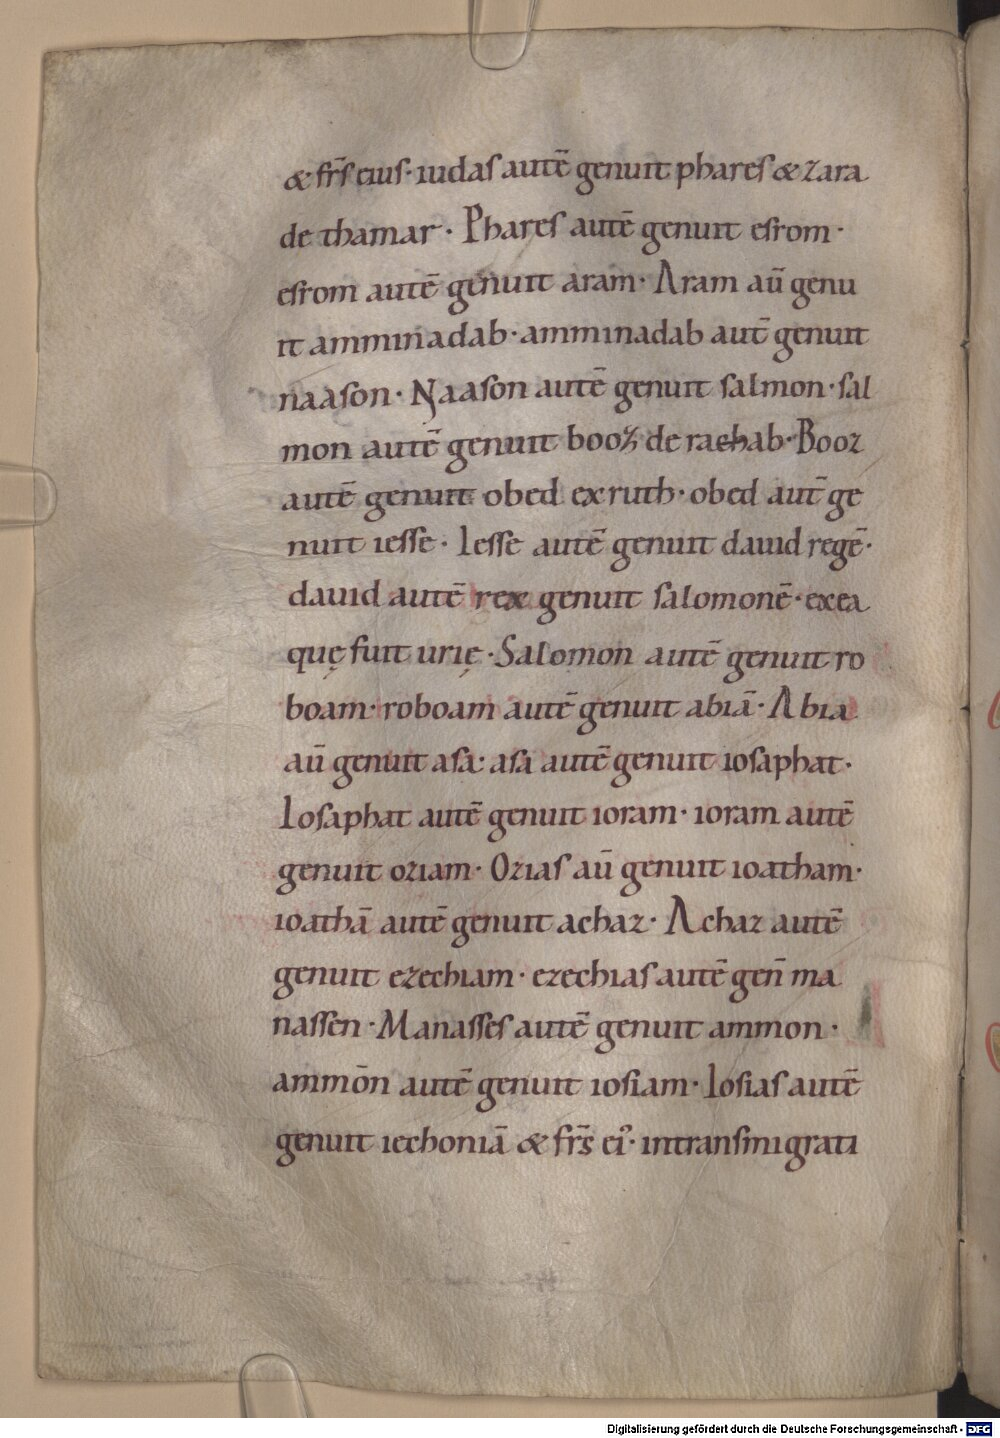 & fr̄s eius· iudas autē genuit phares & zara
de thamar· Phares autē genuit esrom·
esrom autē genuit aram· Aram aū genu
it amminadab· amminadab aut̄ genuit
naason· Naason autē genuit salmon· sal
mon autē genuit booz de rachab· Booz
autē genuit obed ex ruth· obed aut̄ ge
nuit iesse· Iesse autē genuit dauid regē·
dauid autē rex genuit salomonē· ex ea
quę fuit urię· Salomon autē genuit ro
boam· roboam autē genuit abiā· Abia
aū genuit asa· asa autē genuit iosaphat·
Iosaphat autē genuit ioram· ioram autē
genuit oziam· Ozias aū genuit ioatham·
ioathā autē genuit achaz· Achaz autē
genuit ezechiam· ezechias autē gen̄ ma
nassen· Manasses autē genuit ammon·
ammōn autē genuit iosiam· Iosias autē
genuit iechoniā & fr̄s ei᾽· in transmigrati
Digitalisierung gefördert durch die Deutsche Forschungsgemeinschaft - DFG